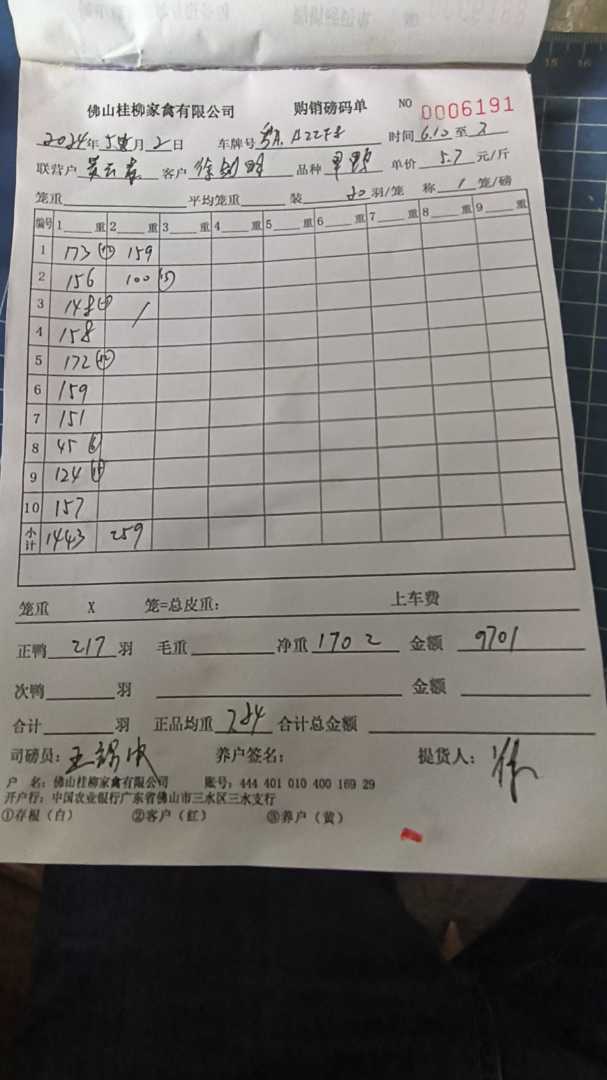 佛山桂柳家禽有限公司 购销磅码单 NO 0006191
2024年5月2日 车牌号 时间 6.10 至
联营户 客户 品种 单价 5.7 元/斤
笼重 平均笼重 装 20 羽/笼 称 1 笼/磅
编号 1 重 2 重 3 重 4 重 5 重 6 重 7 重 8 重 9 重
1 173 159
2 156 100 (15)
3 148
4 158
5 172
6 159
7 151
8 45 (6)
9 124
10 157
小计 1443 259
笼重 X 笼=总皮重: 上车费
正鸭 217 羽 毛重 净重 1702 金额 9701
次鸭 羽 金额
合计 羽 正品均重 7.84 合计总金额
司磅员: 王 养户签名: 提货人:
户 名: 佛山桂柳家禽有限公司 账号: 444 401 010 400 169 29
开户行: 中国农业银行广东省佛山市三水区三水支行
①存根(白) ②客户(红) ③养户(黄)